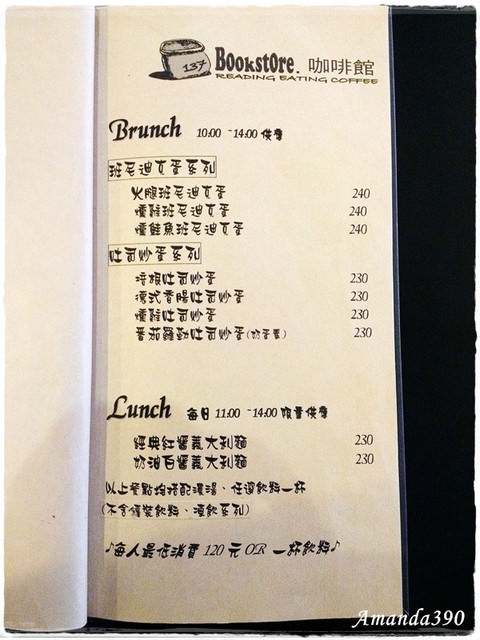 137
Bookstore. 咖啡館
READING EATING COFFEE
Brunch 10:00 ~14:00 供應
班尼迪克蛋系列
火腿班尼迪克蛋 240
燻雞班尼迪克蛋 240
燻鮭魚班尼迪克蛋 240
吐司炒蛋系列
培根吐司炒蛋 230
德式香腸吐司炒蛋 230
燻雞吐司炒蛋 230
番茄羅勒吐司炒蛋(奶蛋素) 230
Lunch 每日 11:00 ~14:00 限量供應
經典紅醬義大利麵 230
奶油白醬義大利麵 230
以上餐點均搭配濃湯、任選飲料一杯
(不含罐裝飲料、酒飲系列)
♪每人最低消費 120 元 OR 一杯飲料♪
Amanda390